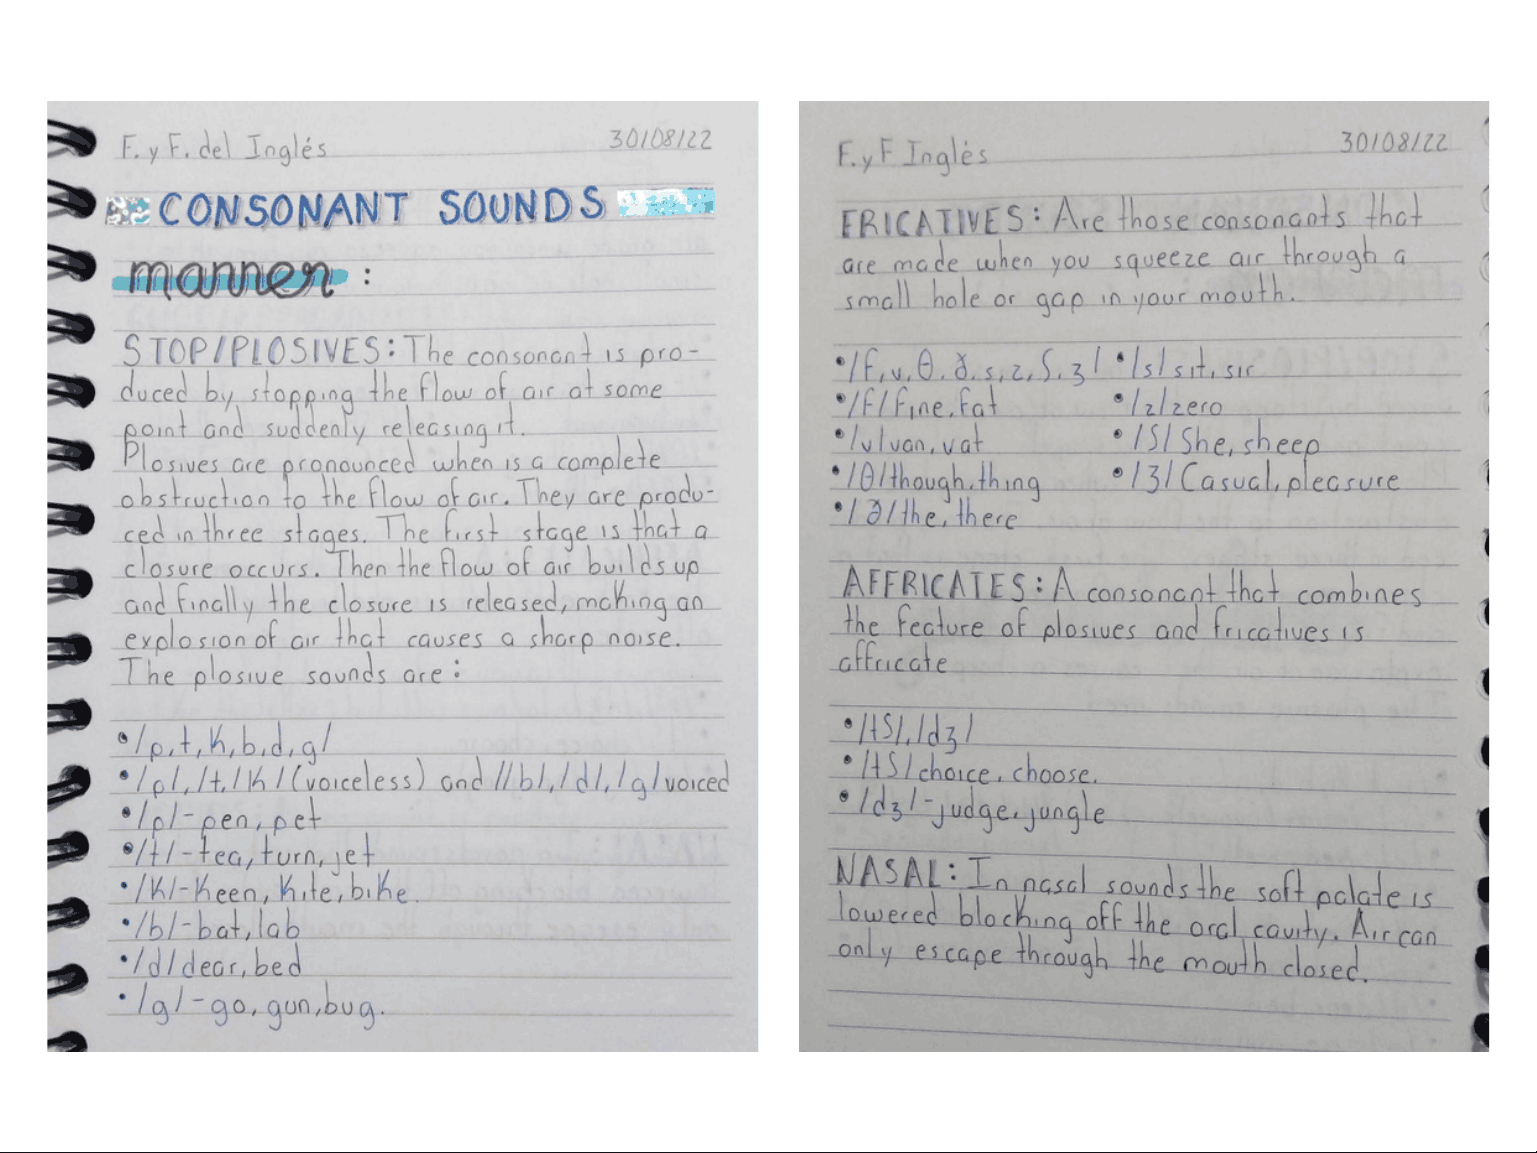 F. y F. del Inglés 30/08/22
CONSONANT SOUNDS
manner :
STOP/PLOSIVES: The consonant is pro-
duced by stopping the flow of air at some
point and suddenly releasing it.
Plosives are pronounced when is a complete
obstruction to the flow of air. They are produ-
ced in three stages. The first stage is that a
closure occurs. Then the flow of air builds up
and finally the closure is released, making an
explosion of air that causes a sharp noise.
The plosive sounds are:
• /p, t, k, b, d, g/
• /p/, /t, /k / (voiceless) and //b/, /d/, /g/ voiced
• /p/- pen, pet
• /t/- tea, turn, jet
• /k/- keen, kite, bike.
• /b/- bat, lab
• /d/ dear, bed
• /g/- go, gun, bug.
F. y F Inglés 30/08/22
FRICATIVES: Are those consonants that
are made when you squeeze air through a
small hole or gap in your mouth.
• /f, v, θ, ð, s, z, ʃ, ʒ/ • /s/ sit, sir
• /f/ fine, fat • /z/ zero
• /v/ van, vat • /ʃ/ She, sheep
• /θ/ though, thing • /ʒ/ Casual, pleasure
• /ð/ the, there
AFFRICATES: A consonant that combines
the feature of plosives and fricatives is
affricate
• /tʃ/, /dʒ/
• /tʃ/ choice, choose.
• /dʒ/- judge, jungle
NASAL: In nasal sounds the soft palate is
lowered blocking off the oral cavity. Air can
only escape through the mouth closed.